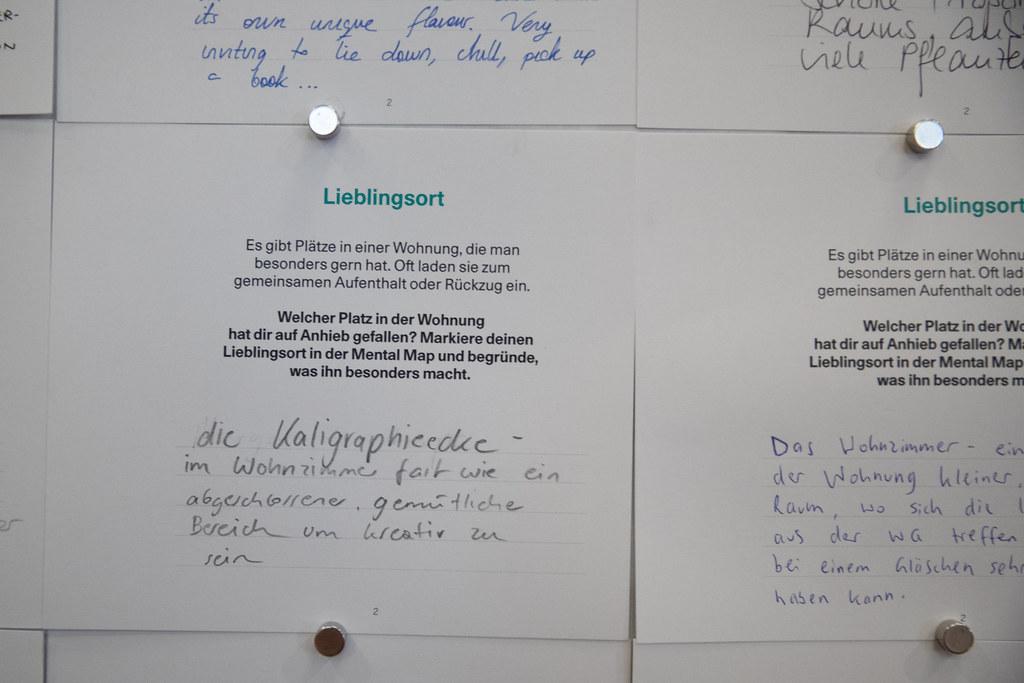 its own unique flavour. Very
inviting to lie down, chill, pick up
a book ...
2
Raums, aus
viele Pflanze
2
ER-
N
Lieblingsort
Es gibt Plätze in einer Wohnung, die man
besonders gern hat. Oft laden sie zum
gemeinsamen Aufenthalt oder Rückzug ein.
Welcher Platz in der Wohnung
hat dir auf Anhieb gefallen? Markiere deinen
Lieblingsort in der Mental Map und begründe,
was ihn besonders macht.
die Kaligraphieecke -
im Wohnzimmer fast wie ein
abgeschlossener, gemütliche
Bereich um kreativ zu
sein
2
Lieblingsort
Es gibt Plätze in einer Wohnu
besonders gern hat. Oft lad
gemeinsamen Aufenthalt oder
Welcher Platz in der Wo
hat dir auf Anhieb gefallen? Ma
Lieblingsort in der Mental Map
was ihn besonders m
Das Wohnzimmer - ein
der Wohnung kleiner,
Raum, wo sich die
aus der WG treffen
bei einem Gläschen sehr
haben kann.
2